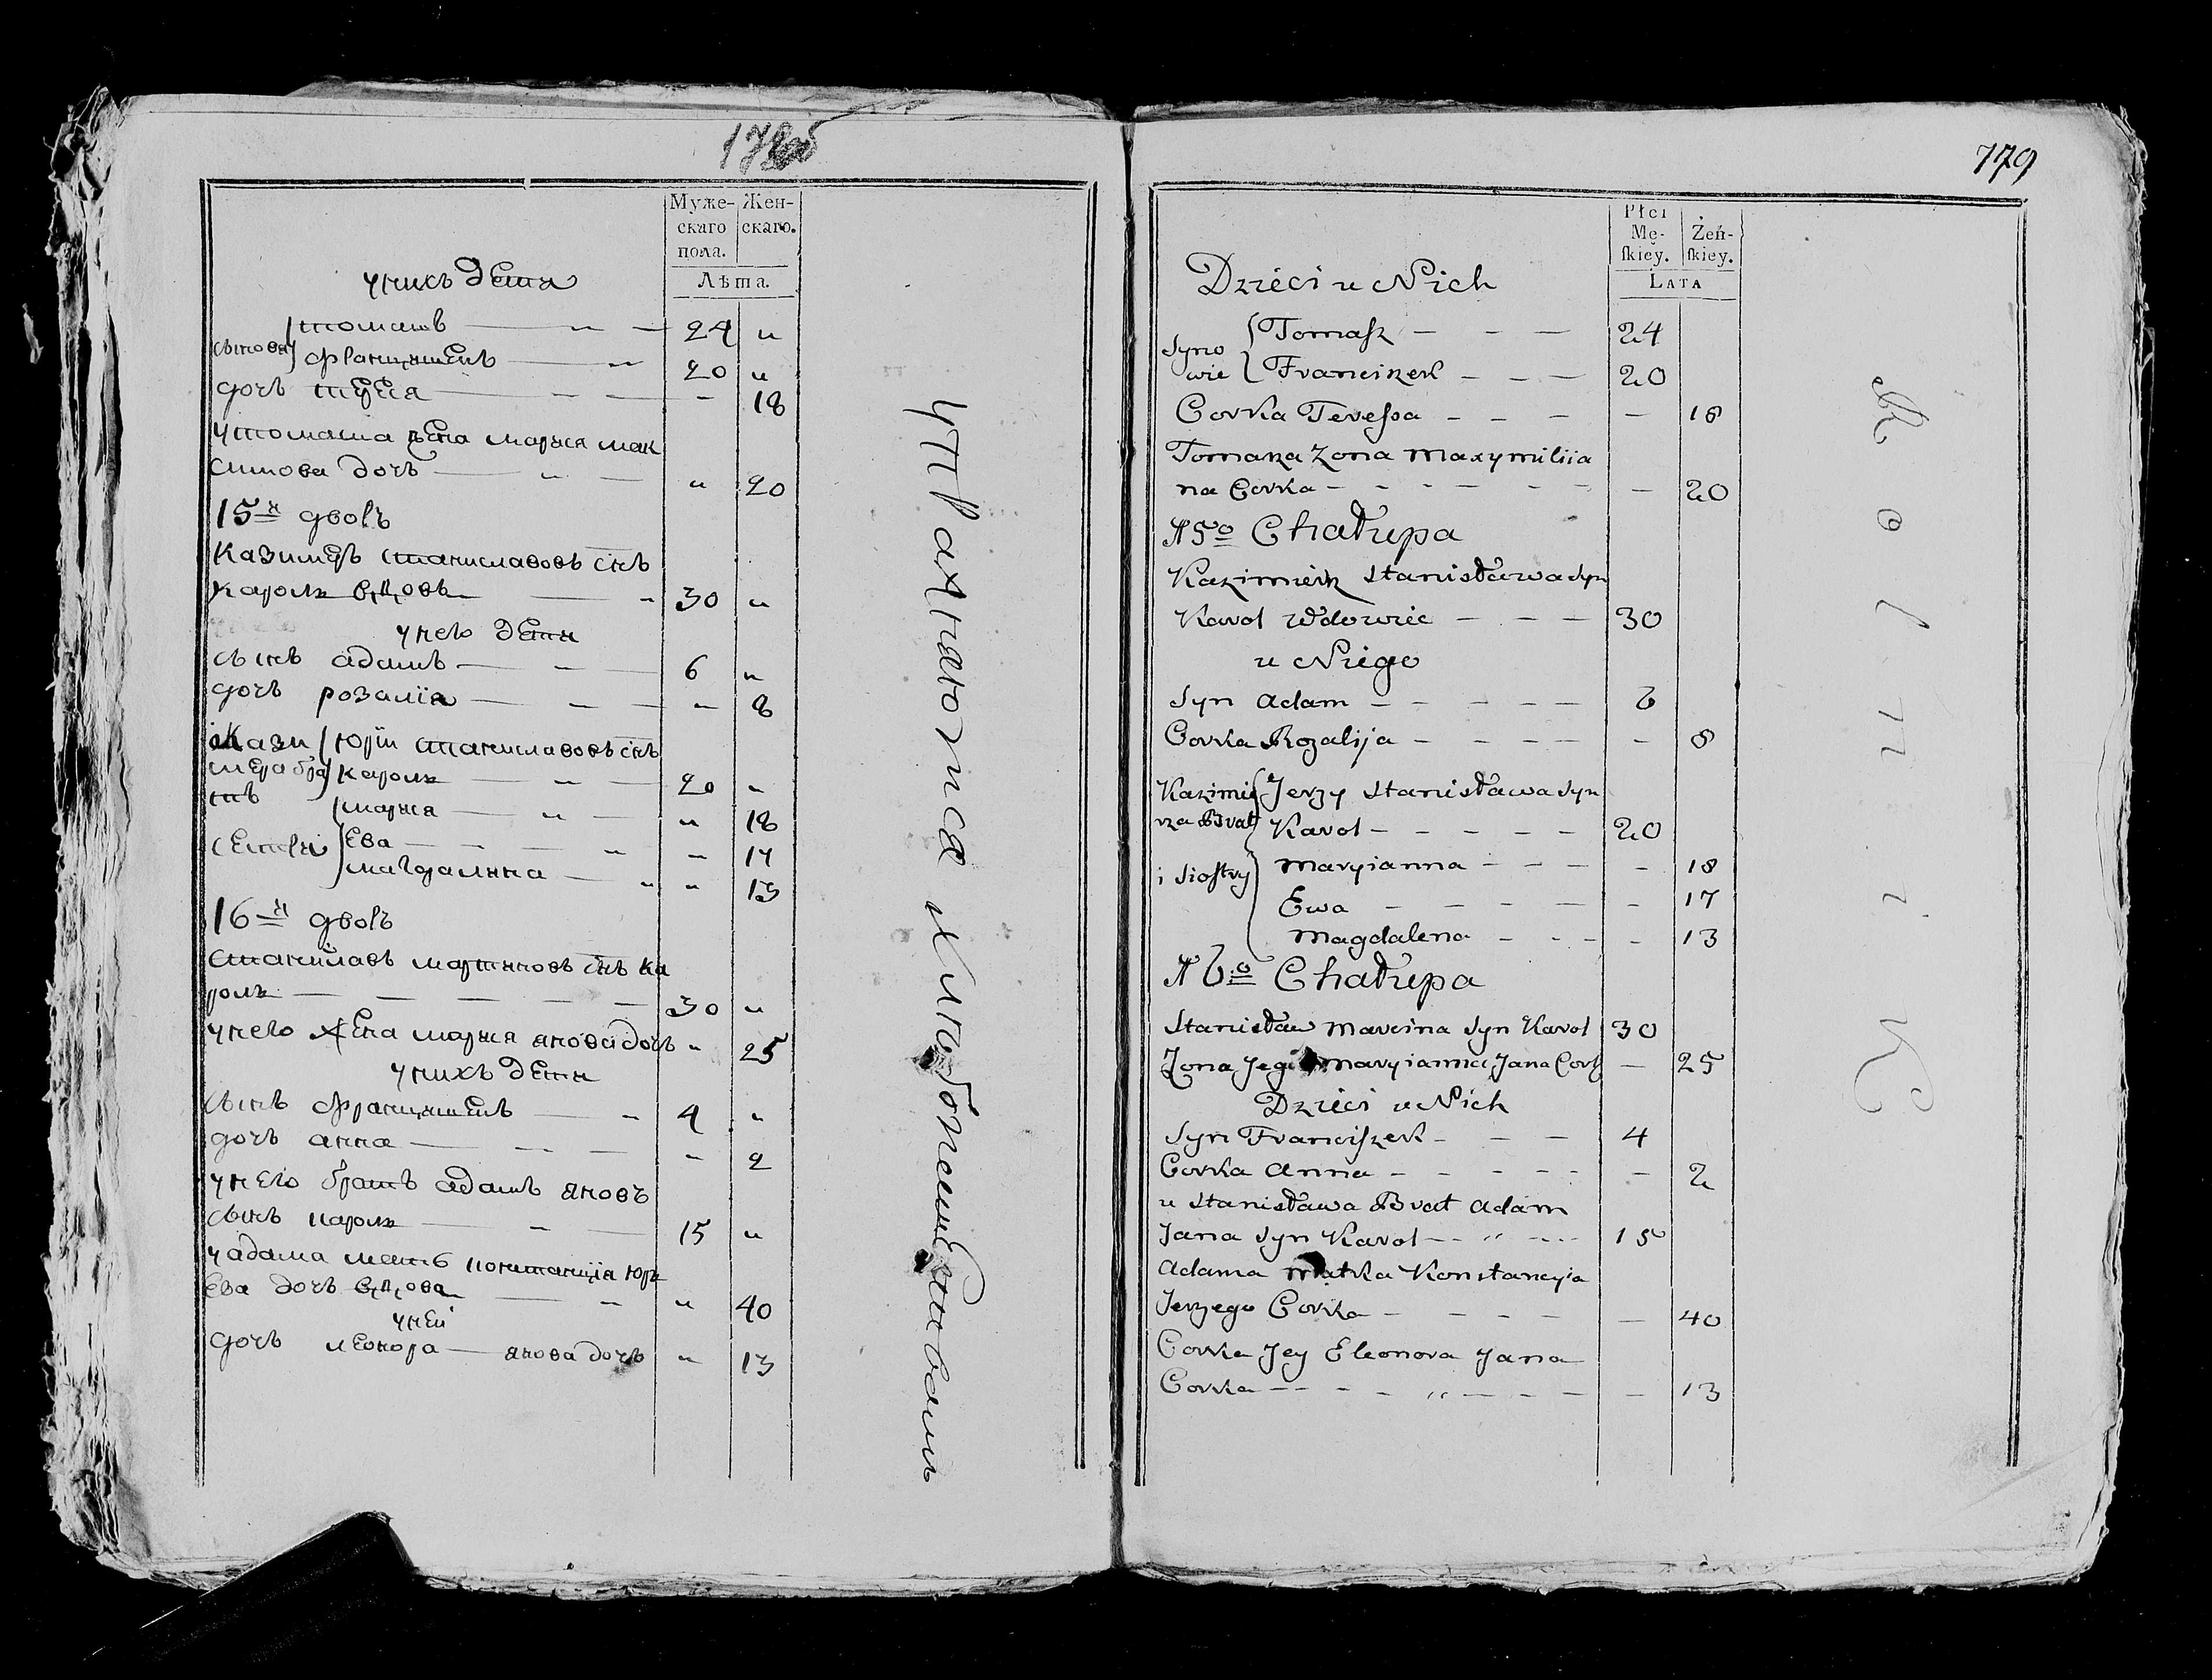 Муже-
скаго
пола.
Жен-
скаго.
Лѣта.
у нихъ дети
сынов томашъ — „ — 24 „
францишекъ — „ 20 „
дочъ тереса — — — 18
у томаша жена марыя мак
симова дочъ — „ — „ 20
15й дворъ
Казимеръ станиславовъ снъ
кароль вдовъ — „ 30 „
у него дети
сынъ адамъ — — — 6 „
дочъ розалія — — — 8
Кази
мера бра
тъ
юріи станиславовъ снъ
кароль — „ — 20 „
сестры
марыя — „ — „ 18
Ева — — — „ — 17
магдалина — „ „ 13
16й дворъ
станиславъ мартиновъ снъ ка
роль — — — — — 30 „
у него жена марыя янова дочъ „ 25
у нихъ дети
сынъ францишекъ — — 4 „
дочъ анна — — — — 2
у него братъ адамъ яновъ
сынъ кароль — — 15 „
у адама мать констанція юрь
Ева дочъ вдова — „ „ 40
у неи
дочъ леонора — янова дочъ „ 13
упражняются хлебопашествомъ
179
Płci
Mę-
ſkiey.
Żeń-
ſkiey.
LATA
Dzieci u Nich
Syno
wie
Tomaſz — — — 24
Franciszek — — — 20
Corka Tereſsa — — — — — 18
Tomasza Zona Maxymiliia
na Corka — — — — — — — 20
15o Chałupa
Kazimierz Stanisława Syn
Karol Wdowiec — — — 30
u Niego
Syn Adam — — — — — 6
Corka Rozalija — — — — — 8
Kazimie
rza Brat
Jerzy Stanisława Syn
Karol — — — — — 20
i Sioſtry
Maryianna — — — — 18
Ewa — — — — — — 17
Magdalena — — — — 13
16o Chałupa
Stanisław Marcina Syn Karol 30
Zona Jego Maryianna Jana Cork — 25
Dzieci u Nich
Syn Franciſzek — — — 4
Corka Anna — — — — — — 2
u Stanisława Brat Adam
Jana Syn Karol — — „ — — 15
Adama Matka Konstancyia
Jerzego Corka — — — — — 40
Corka Jey Eleonora Jana
Corka — — — — „ — — — — 13
Rolnik